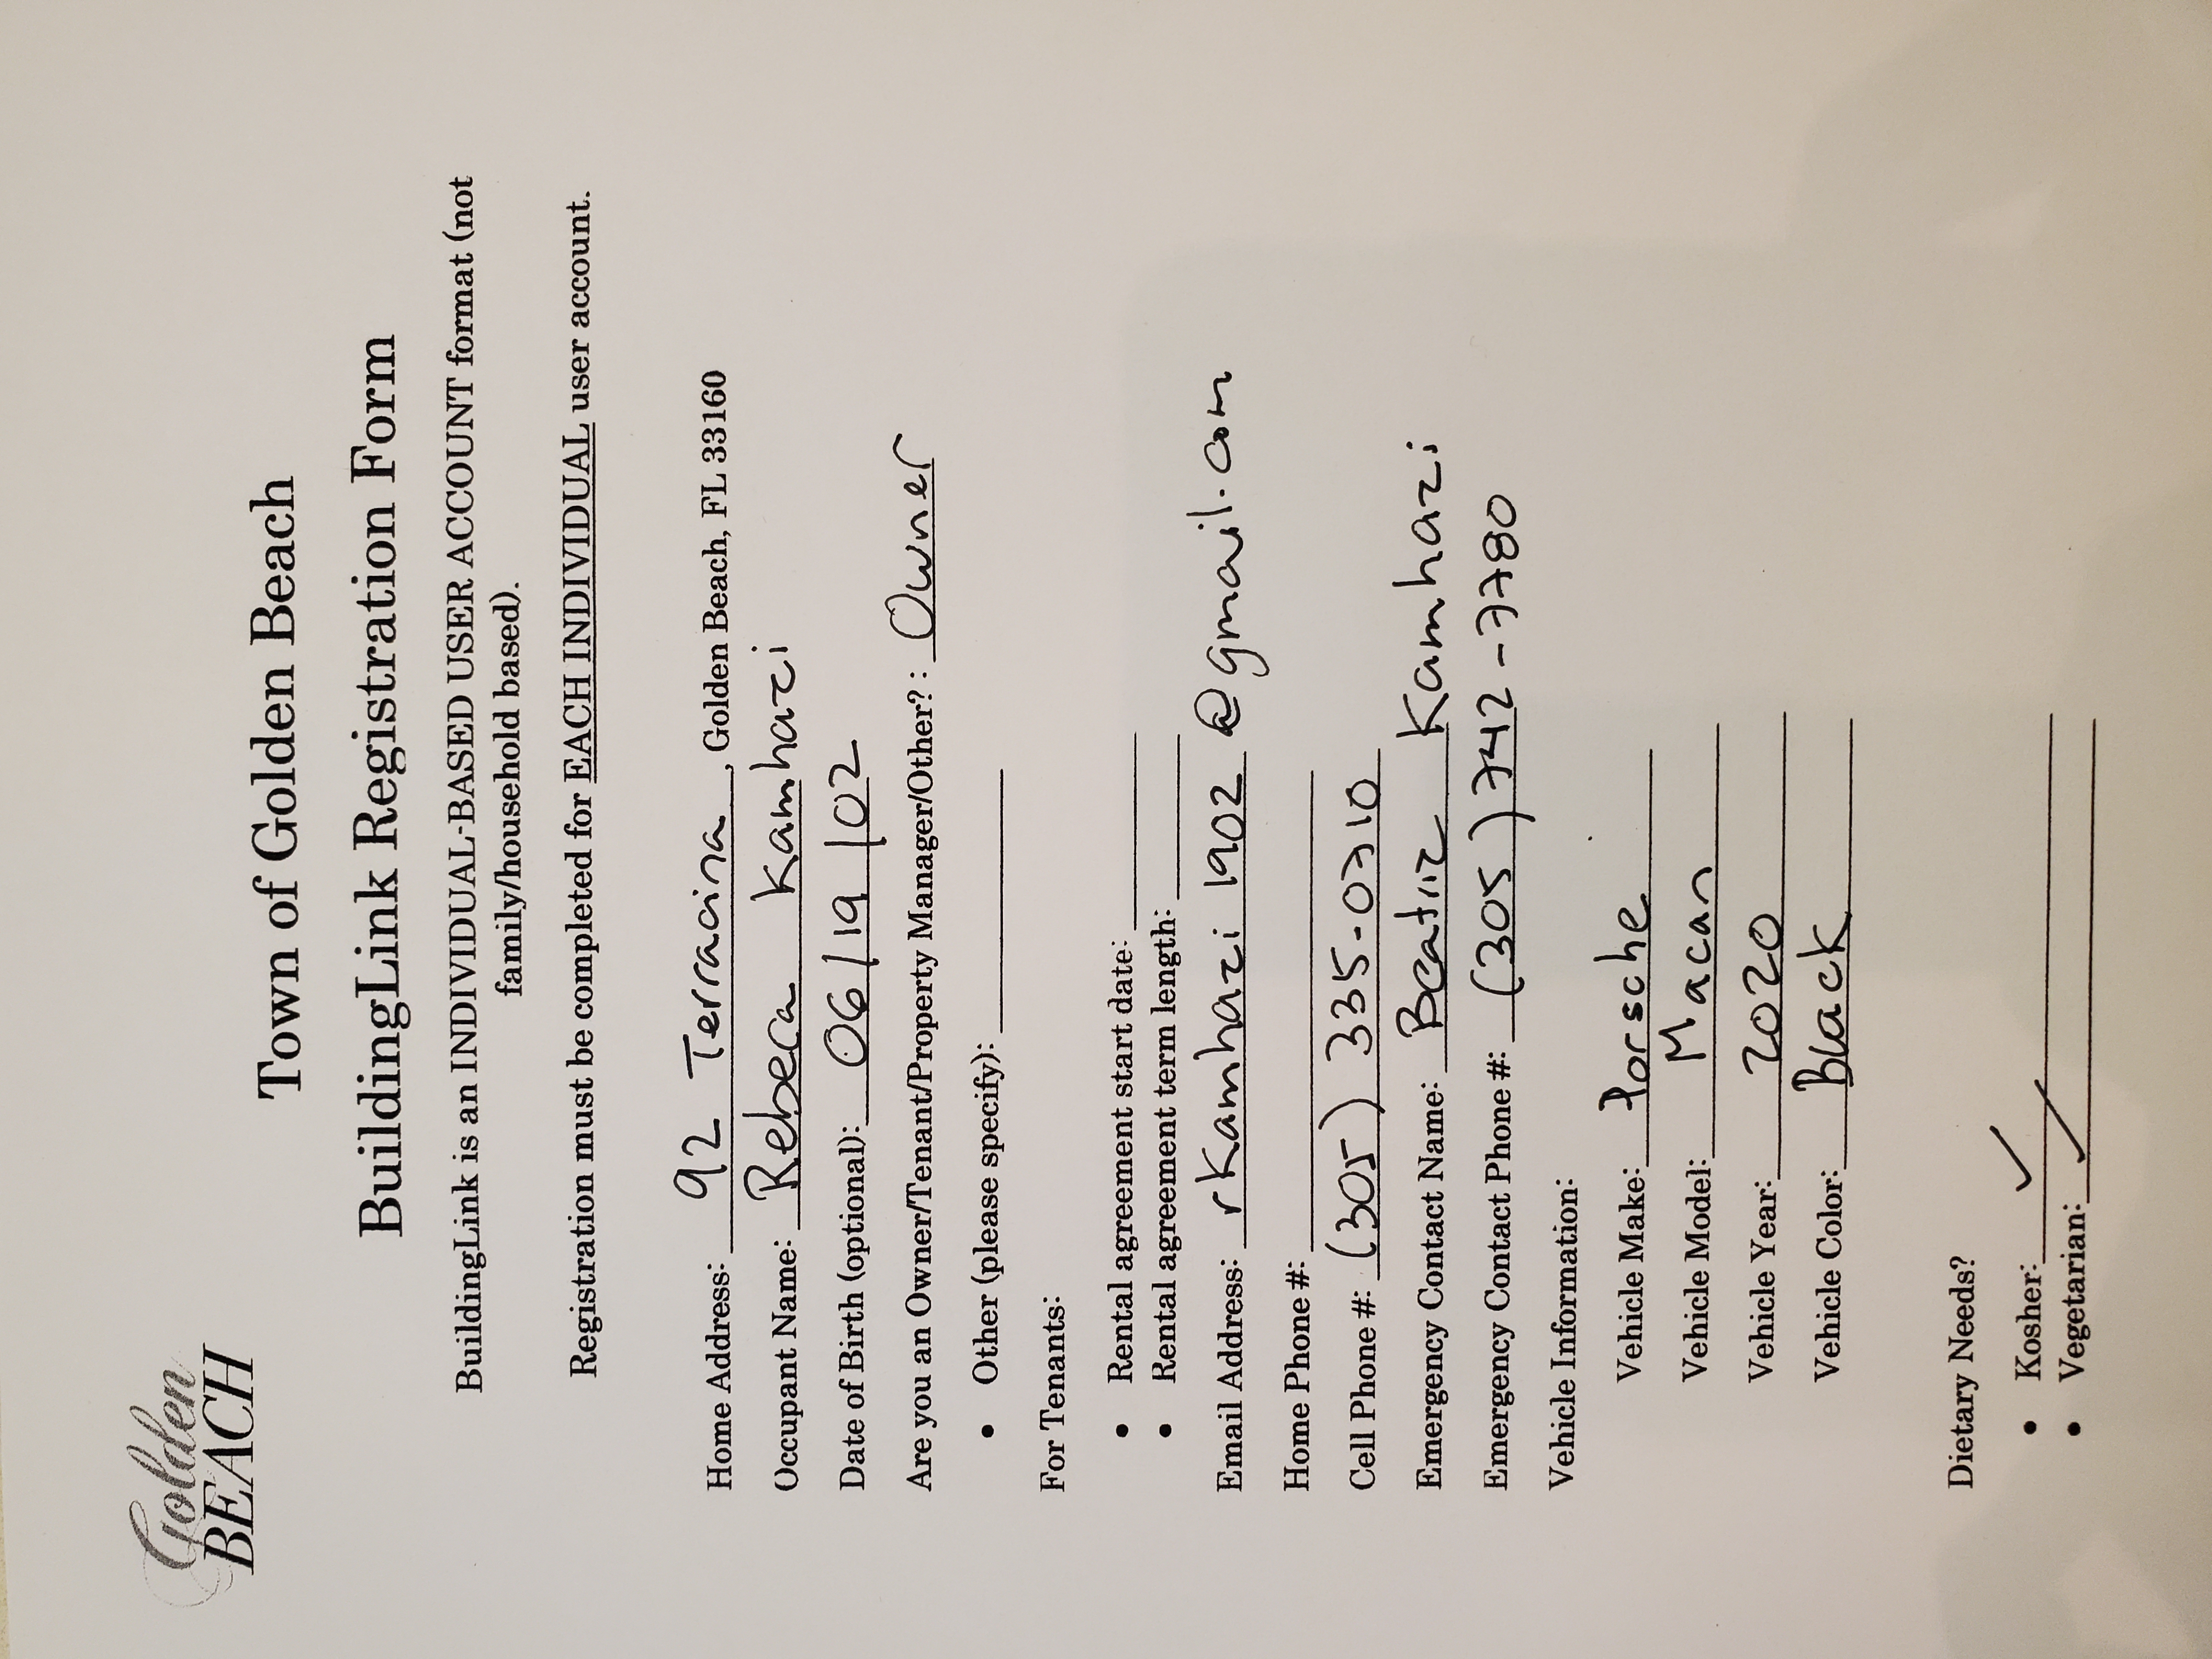 Golden
BEACH
Town of Golden Beach
BuildingLink Registration Form
BuildingLink is an INDIVIDUAL-BASED USER ACCOUNT format (not
family/household based).
Registration must be completed for EACH INDIVIDUAL user account.
Home Address: 92 Terracina, Golden Beach, FL 33160
Occupant Name: Rebeca Kamhazi
Date of Birth (optional): 06/19/02
Are you an Owner/Tenant/Property Manager/Other? : Owner
• Other (please specify):
For Tenants:
• Rental agreement start date:
• Rental agreement term length:
Email Address: rkamhazi1902@gmail.com
Home Phone #:
Cell Phone #: (305) 335-0710
Emergency Contact Name: Beatriz Kamhazi
Emergency Contact Phone #: (305) 742-7780
Vehicle Information:
Vehicle Make: Porsche
Vehicle Model: Macan
Vehicle Year: 2020
Vehicle Color: Black
Dietary Needs?
• Kosher: ✓
• Vegetarian: ✓